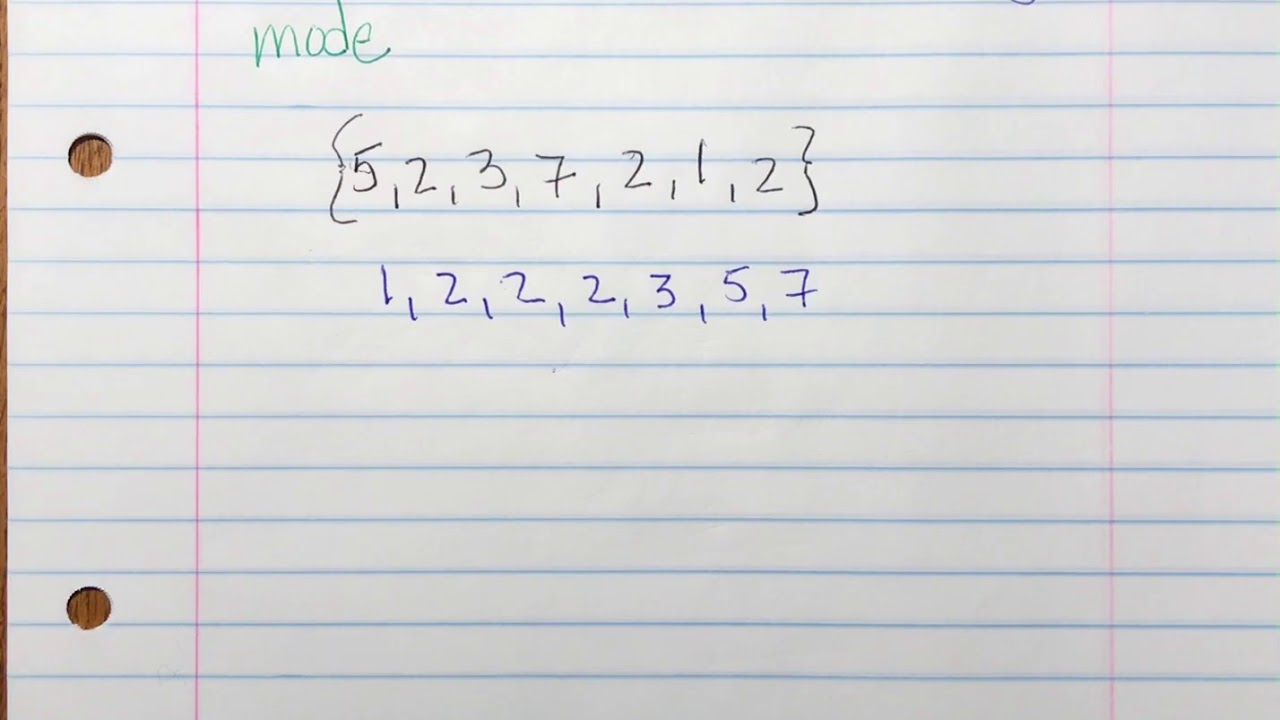 mode
{5,2,3,7,2,1,2}
1,2,2,2,3,5,7